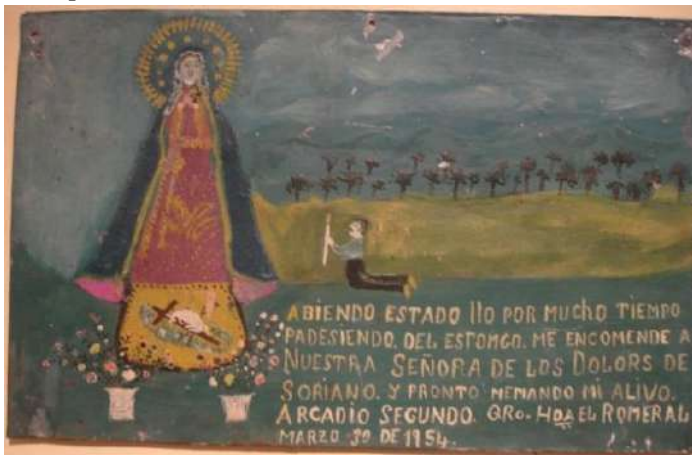 ABIENDO ESTADO llO POR MUCHO TIEMPO
PADESIENDO. DEL ESTOMGO. ME ENCOMENDE A
NUESTRA SEÑORA DE LOS DOLORS DE
SORIANO. Y PRONTO MEMANDO MI ALIVO.
ARCADIO SEGUNDO. QRO. HDA EL ROMERAL
MARZO 30 DE 1954.